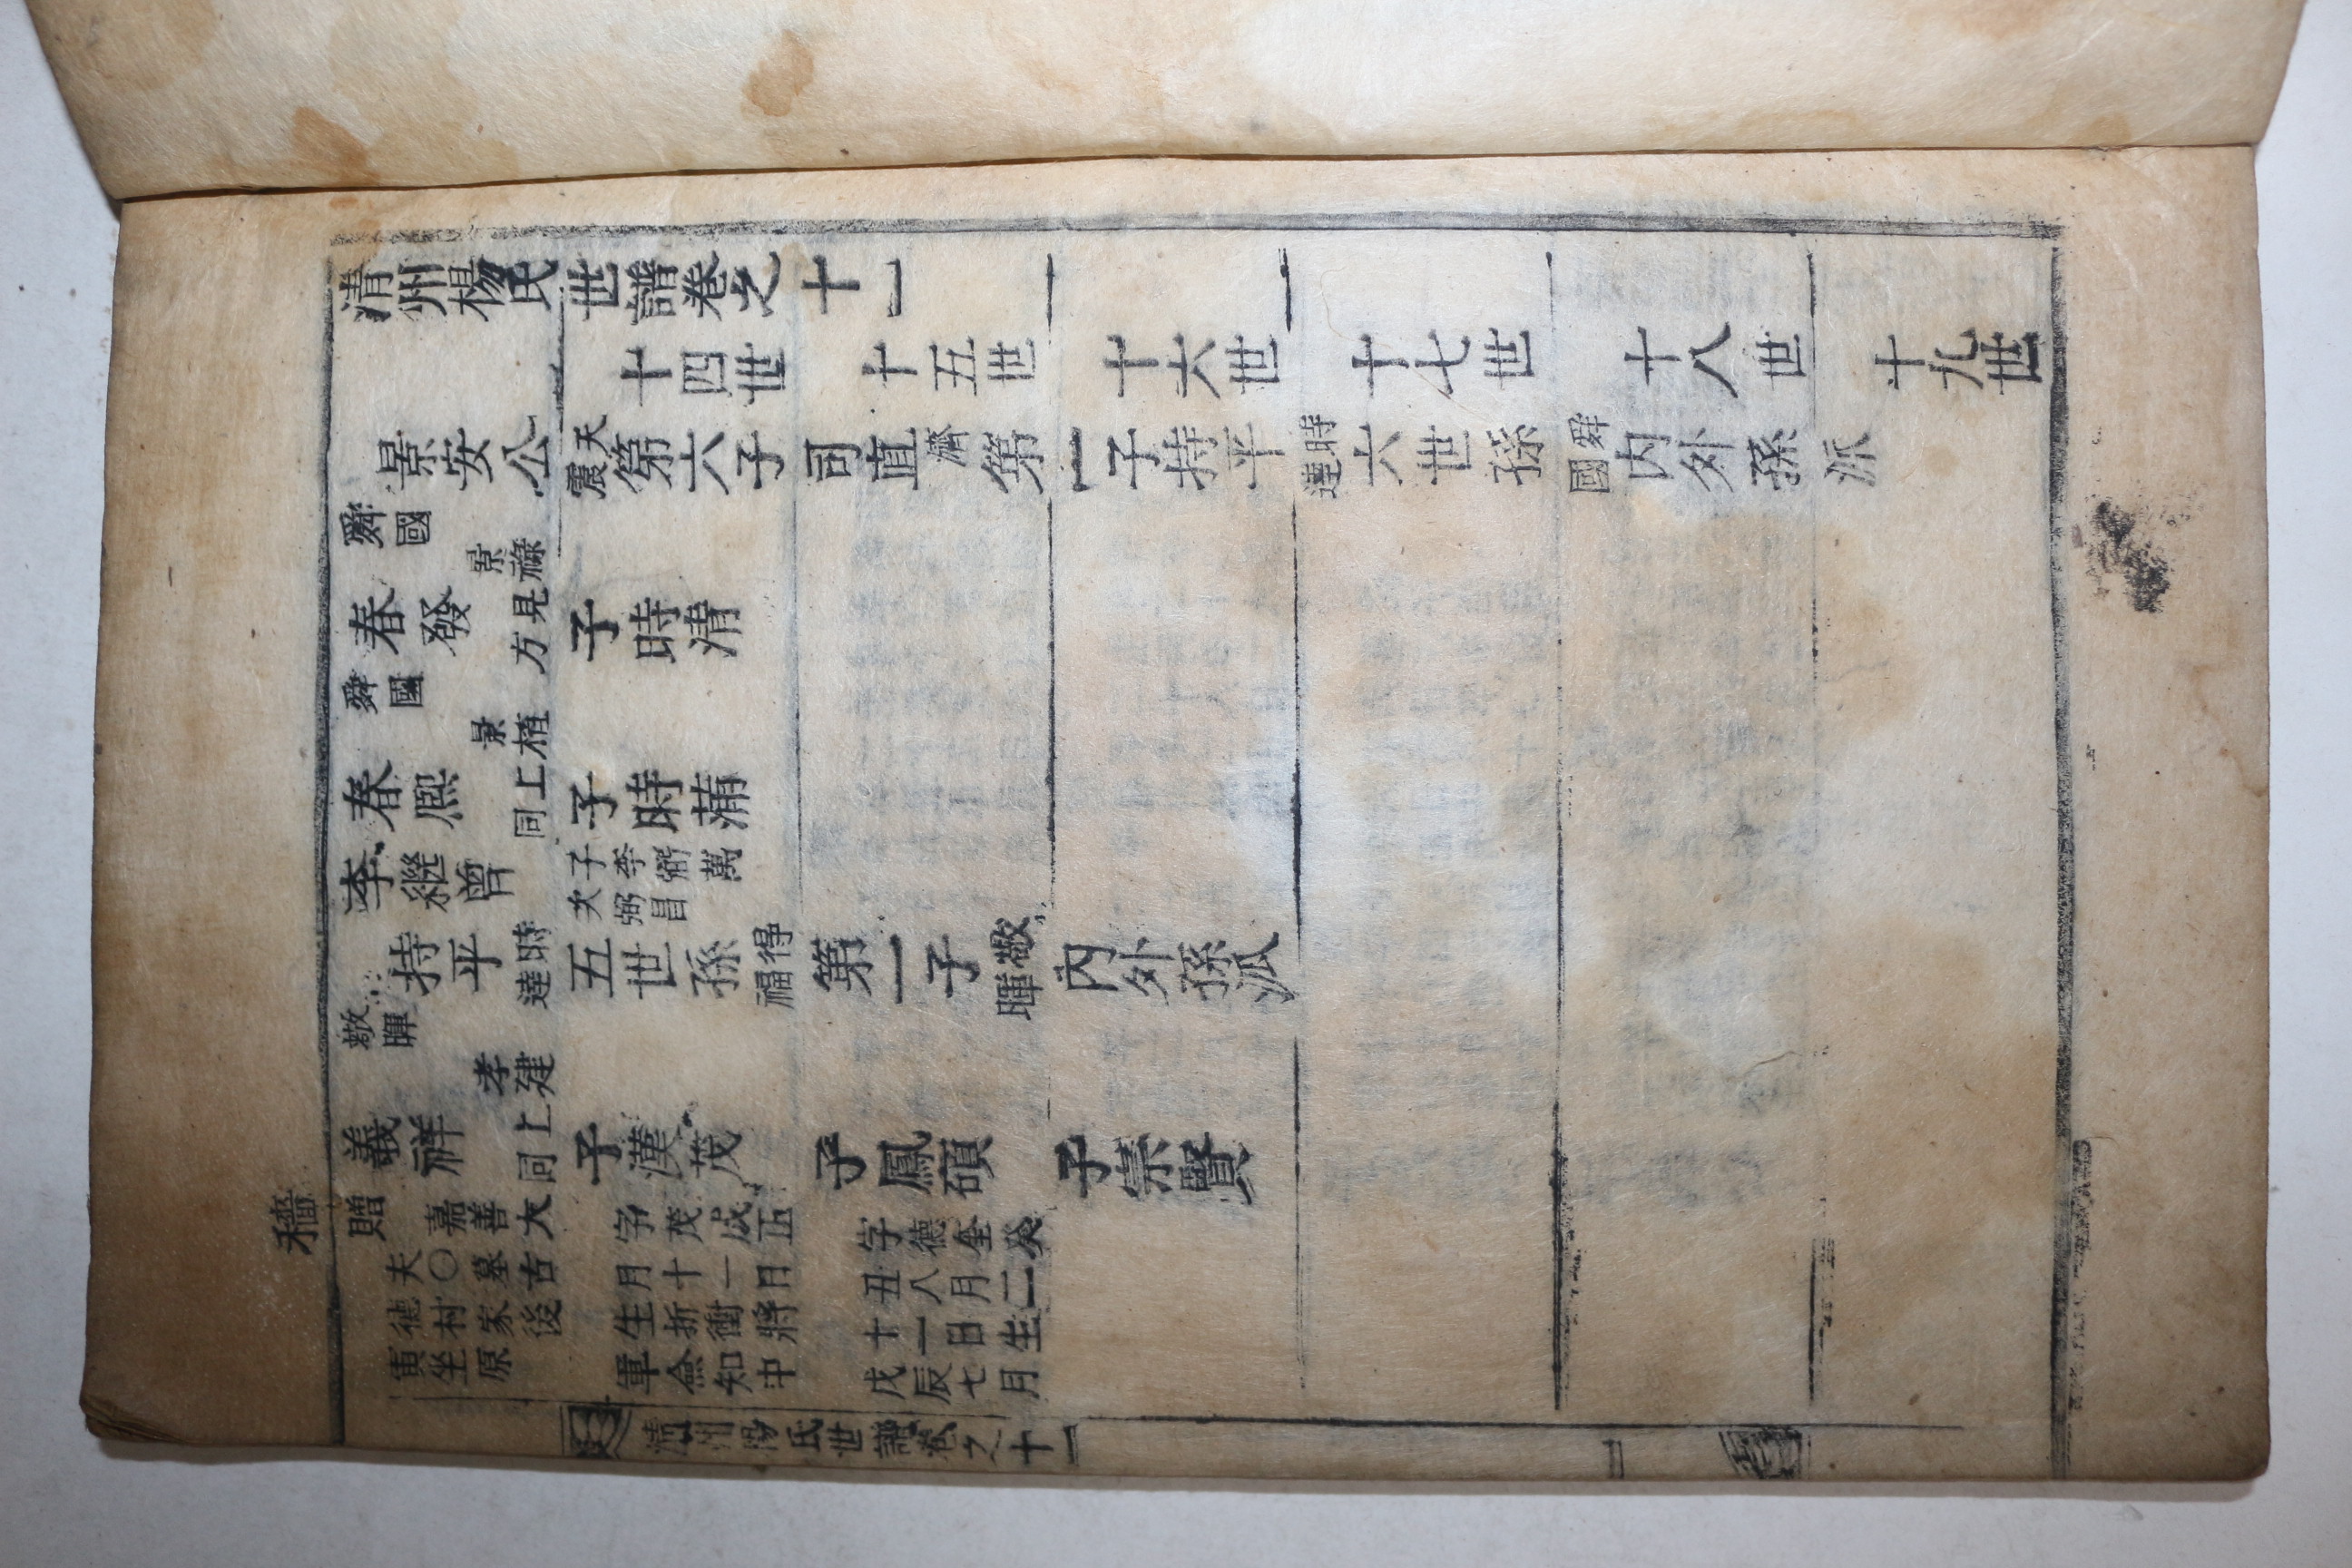 清州楊氏世譜卷之十一
十四世 十五世 十六世 十七世 十八世 十九世
景安公天震第六子司直濟第一子持平時達六世孫舜國內外孫派
舜國
景祿
春發見方 子時清
舜國
景植
春熙上同 子時蒲
子李弼萬
李繼曾 次弼昌
持平時達五世孫得福第一子敬暉內外孫派
敬暉
孝建
義祥上同 子漢茂 子鳳碩 子崇賢
穡
贈嘉善大 字茂成正 字德奎癸
夫〇墓古 月十一日 丑八月二
德村家後 生折衝將 十一日生
寅坐原 軍僉知中 戊辰七月
清州陽氏世譜卷之十一 一